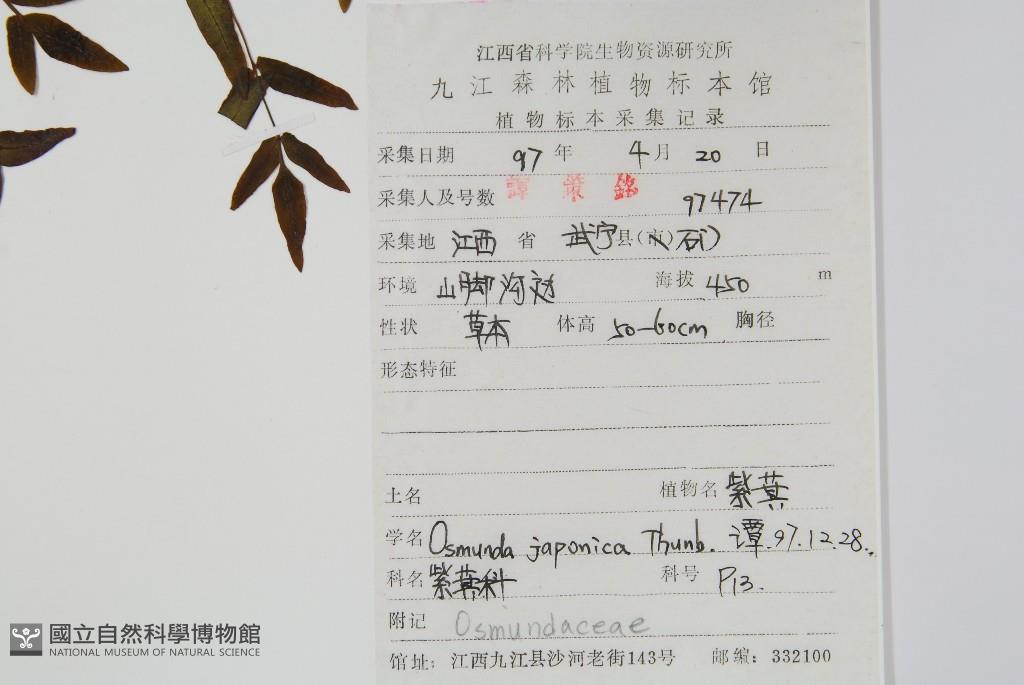 江西省科学院生物资源研究所
九江森林植物标本馆
植物标本采集记录
采集日期 97 年 4 月 20 日
采集人及号数 譚 策 銘 97474
采集地 江西 省 武宁 县(市)
环境 山脚沟边 海拔 450 m
性状 草本 体高 50-60cm 胸径
形态特征
土名 植物名 紫萁
学名 Osmunda japonica Thunb. 谭.97.12.28.
科名 紫萁科 科号 P13.
附记 Osmundaceae
馆址：江西九江县沙河老街143号 邮编：332100
國立自然科學博物館
NATIONAL MUSEUM OF NATURAL SCIENCE